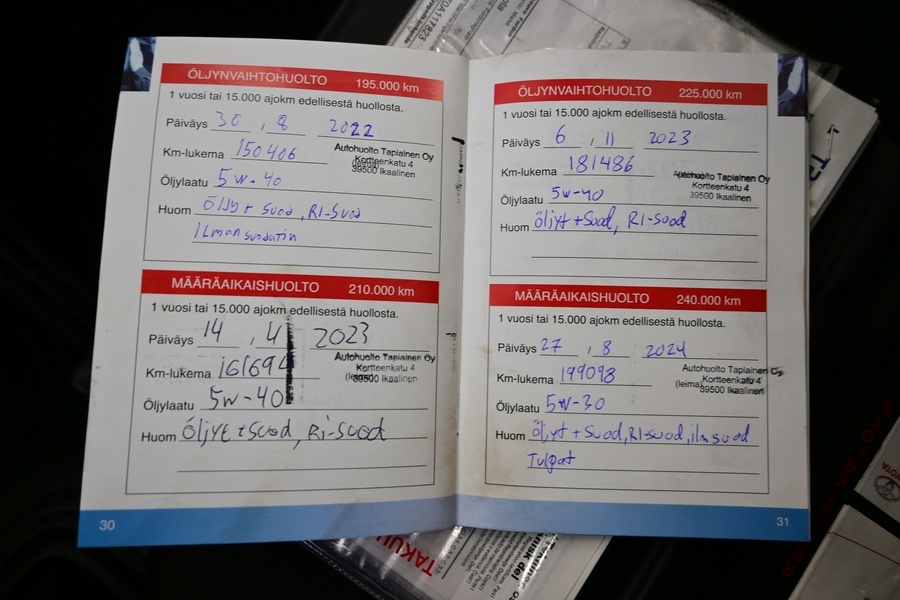 ÖLJYNVAIHTOHUOLTO 195.000 km
1 vuosi tai 15.000 ajokm edellisestä huollosta.
Päiväys 30 , 8 2022
Km-lukema 150406
Autohuolto Tapiainen Oy
Kortteenkatu 4
39500 Ikaalinen
Öljylaatu 5w-40
Huom Öljy + suod, Ri-suod
Ilmansuodatin
MÄÄRÄAIKAISHUOLTO 210.000 km
1 vuosi tai 15.000 ajokm edellisestä huollosta.
Päiväys 14 , 4 2023
Km-lukema 161694
Autohuolto Tapiainen Oy
Kortteenkatu 4
(leima) 39500 Ikaalinen
Öljylaatu 5w-40
Huom Öljyt + suod, Ri-suod
30
ÖLJYNVAIHTOHUOLTO 225.000 km
1 vuosi tai 15.000 ajokm edellisestä huollosta.
Päiväys 6 , 11 2023
Km-lukema 181486
Autohuolto Tapiainen Oy
Kortteenkatu 4
39500 Ikaalinen
Öljylaatu 5w-40
Huom öljyt + suod, Ri-suod
MÄÄRÄAIKAISHUOLTO 240.000 km
1 vuosi tai 15.000 ajokm edellisestä huollosta.
Päiväys 27 , 8 2024
Km-lukema 199098
Autohuolto Tapiainen Oy
Kortteenkatu 4
(leima) 39500 Ikaalinen
Öljylaatu 5w-30
Huom öljyt + suod, Ri-suod, ilmsuod
Tulpat
31